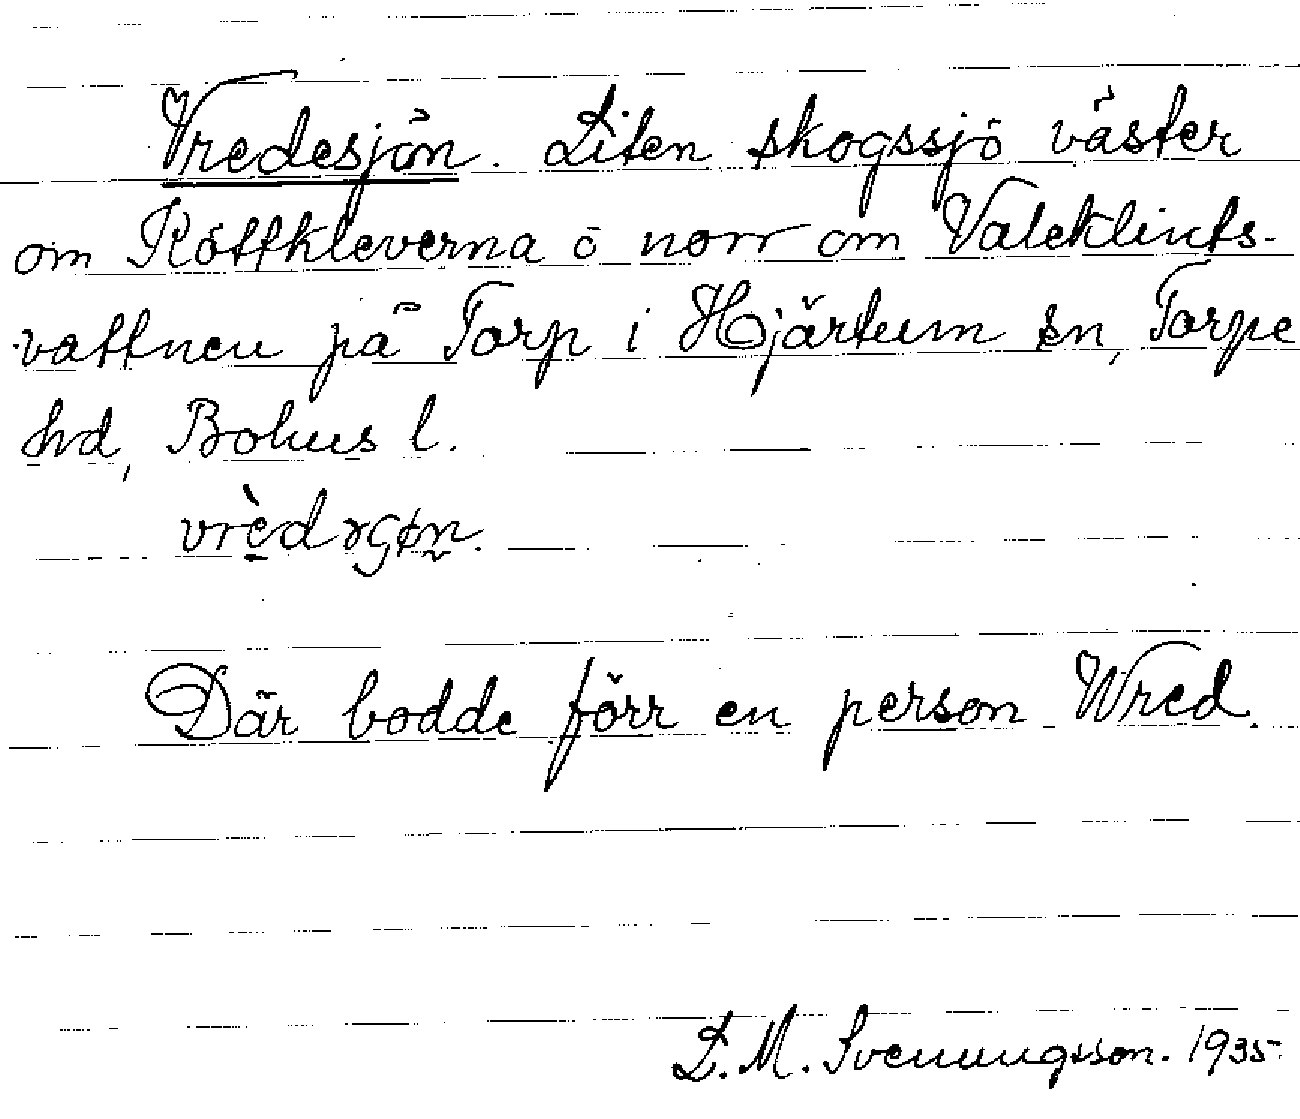 Vredesjön. Liten skogssjö väster
om Röttkleverna ö norr om Valeklints-
vattnen på Torp i Hjärtum sn, Torpe
hd, Bohus l.
Där bodde förr en person Wred.
L. M. Svenungsson. 1935.